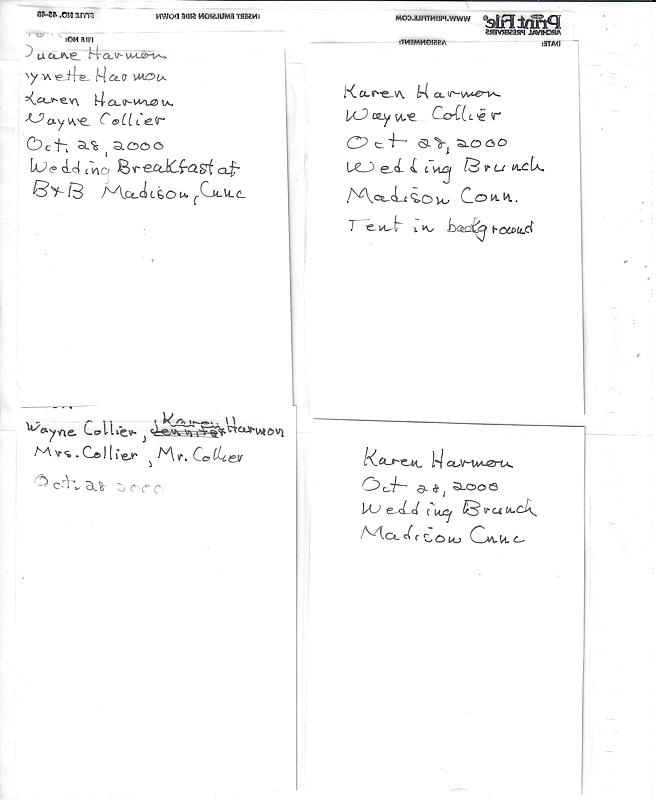 STYLE NO. 45-4B
INSERT EMULSION SIDE DOWN
WWW.PRINTFILE.COM
Print File®
ARCHIVAL PRESERVERS
FILE NO:
ASSIGNMENT:
DATE:
uane Harmon
ynette Harmon
Karen Harmon
Wayne Collier
Oct. 28, 2000
Wedding Breakfast at
B+B Madison, Cnnc
Karen Harmon
Wayne Collier
Oct 28, 2000
Wedding Brunch
Madison Conn.
Tent in background
Karen
Wayne Collier, Jennifer Harmon
Mrs. Collier, Mr. Collier
Oct. 28 2000
Karen Harmon
Oct 28, 2000
Wedding Brunch
Madison Cnnc